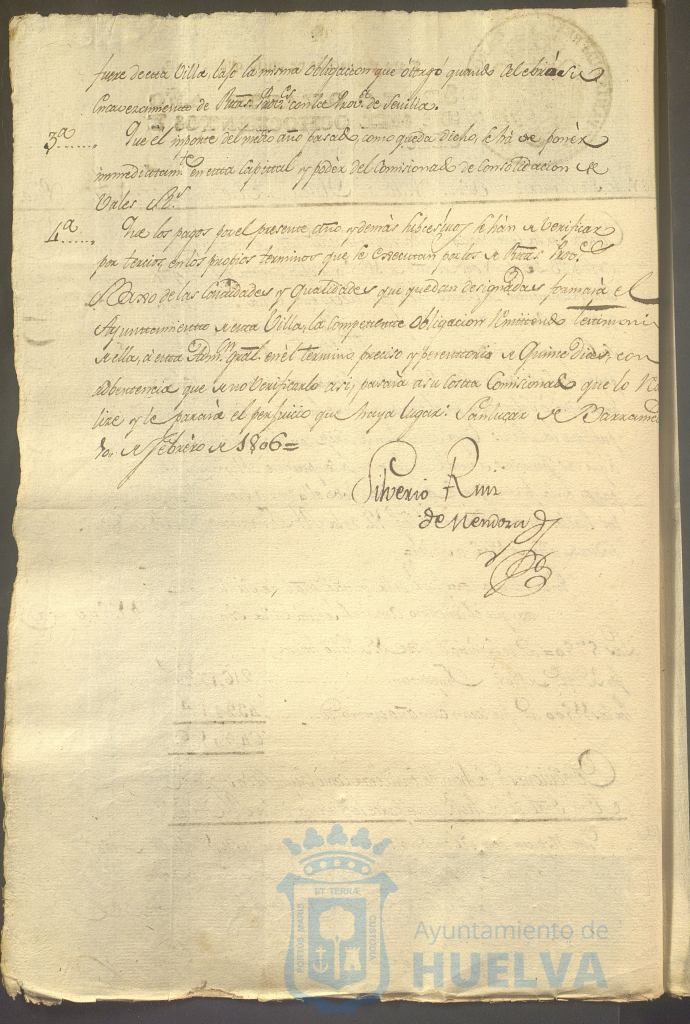 fuere de esta Villa, bajo la misma obligacion que otorgó quando celebró su
Encavezamiento de Rtas. Prov.s con la Prov.a de Sevilla.
3.a Que el importe del medio año basado, como queda dicho, se há de poner
immediatam.te en esta Capital y poder del Comisionado de Consolidacion de
Vales R.s
4.a Que los pagos por el presente año, y demás subcesivos se hán de verificar
por tercios, en los propios terminos que se executan por los de Rtas. Prov.s
de las Cantidades y Qualidades que quedan designadas formará el
Ayuntamiento de esta Villa, la competente Obligacion remitiendo testimonio
de ella, á esta Adm.on gral. en el termino preciso y perentorio de Quince dias, con
adbertencia que de no verificarlo asi, pasará a su costa Comisionado que lo
lize y le parará el perjuicio que haya lugar: Sanlucar de Barrameda
de Febrero de 1806=
Silverio Ruiz
de Mendoza
PORTUS MARIS ET TERRÆ CUSTODIA
Ayuntamiento de
HUELVA